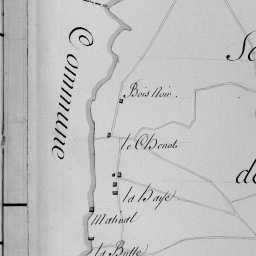 Commune
Se
Bois Noir.
le Chenot
de
la Haye
Matinal
la Butte